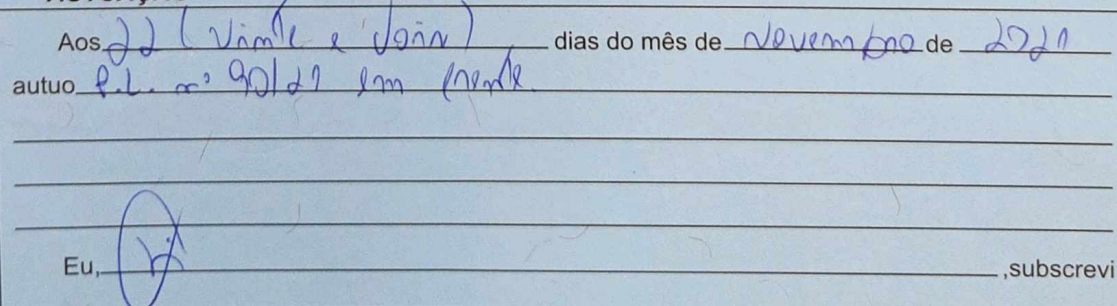 Aos 22 (Vinte e dois) dias do mês de Novembro de 2021
autuo P.L. nº 90/21 em frente.
Eu, ,subscrevi